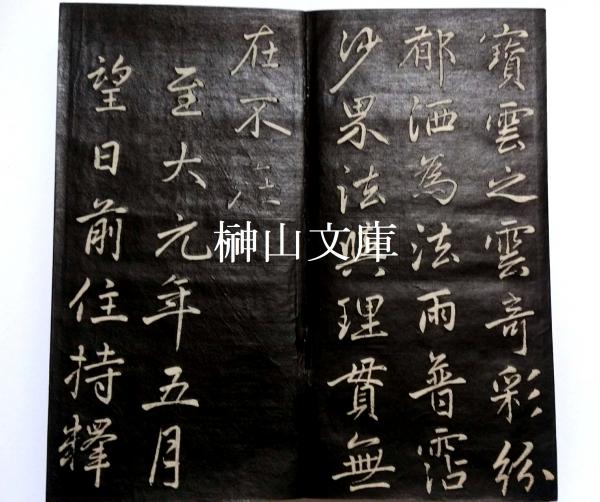 寶雲之雲奇彩紛
郁洒為法雨普霑
沙界法與理貫無
在不在
至大元年五月
望日前住持釋
榊山文庫